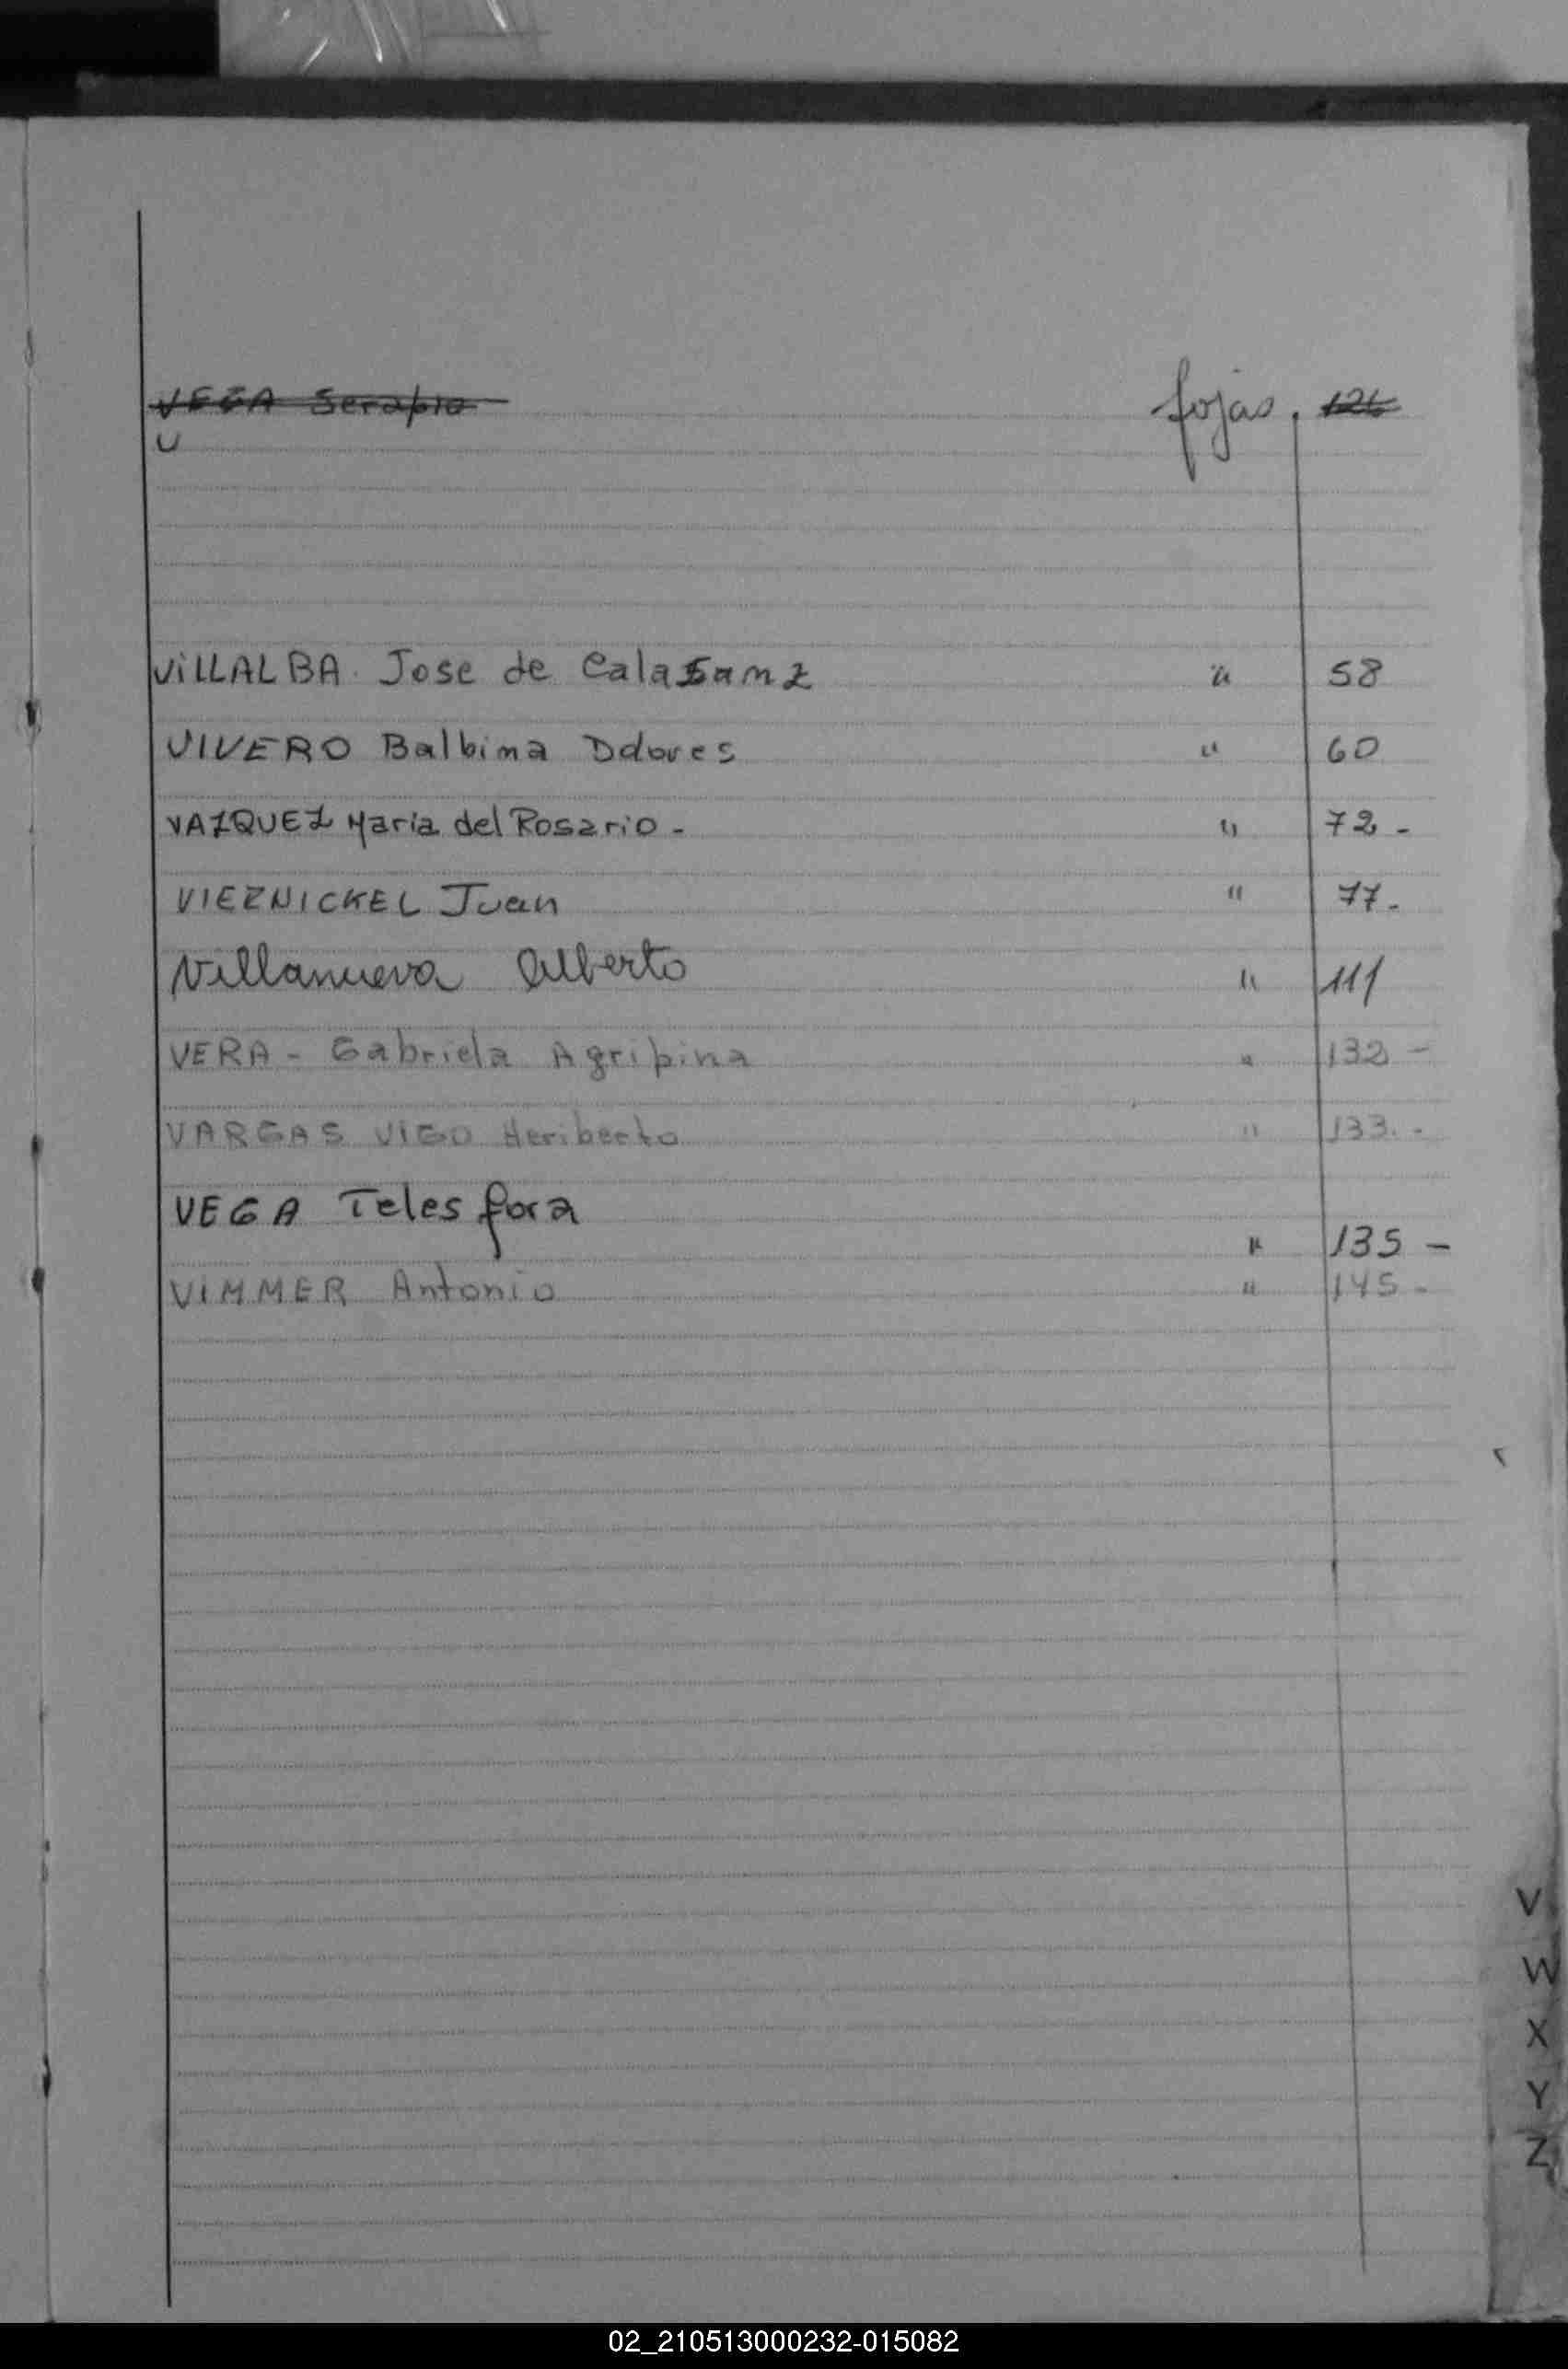 VEGA Serapio fojas. 126
U
ViLLALBA. Jose de Calasanz " 58
VIVERO Balbina Dolores " 60
VAZQUEZ Maria del Rosario - " 72 -
VIEZNICKEL Juan " 77 -
Villanueva Alberto " 111
VERA - Gabriela Agripina " 132 -
VARGAS ViGO Heriberto " 133. -
VEGA Telesfora " 135 -
ViMMER Antonio " 145 -
V
W
X
Y
Z
02_210513000232-015082